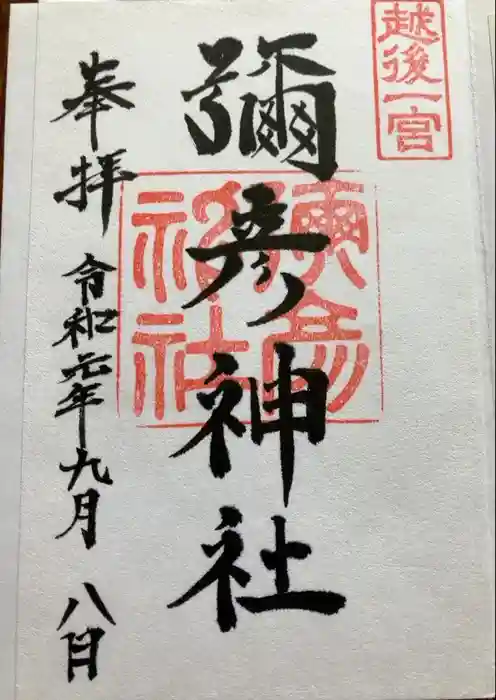 越後一宮
彌彦神社
奉拝
令和元年九月八日
彌彦神社